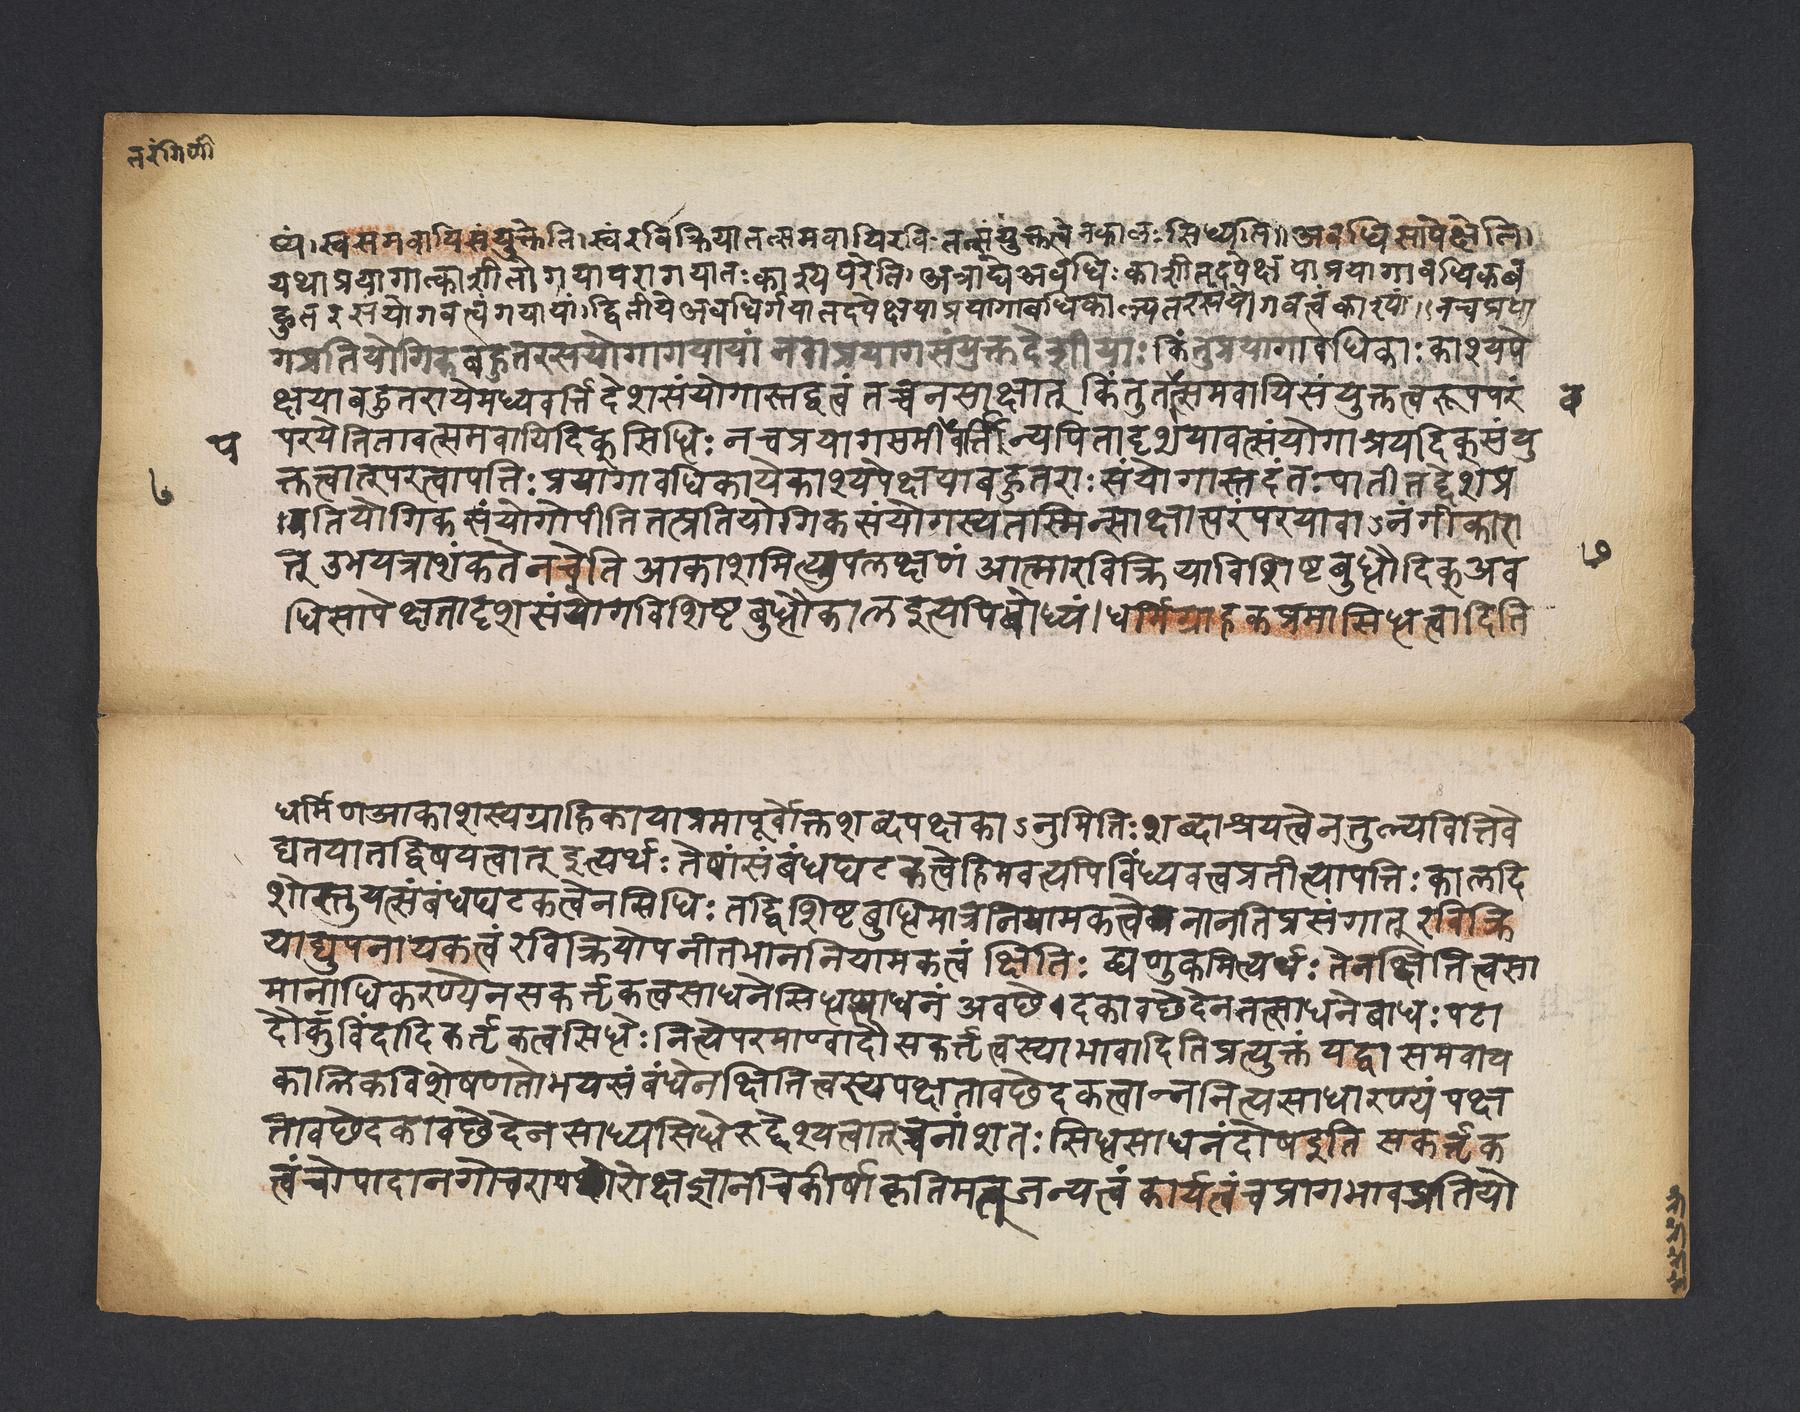 तरंगिणी
ष्यं।स्वसमवायिसंयुक्तेति।स्वंरविक्रियातत्समवायिरविःतत्संयुक्तत्वेनकालःसिध्यति॥अवधिसापेक्षेति।
यथाप्रयागात्काशीतोगयापरागयातःकाश्यपरेति।अत्राद्येअवधिःकाशीतदपेक्षयाप्रयागावधिकब
हुतरसंयोगवत्त्वंगयायां।द्वितीयेअवधिर्गयातदपेक्षयाप्रयागावधिकाल्पतरसंयोगवत्त्वंकाश्यां॥नचप्रया
गप्रतियोगिकबहुतरसंयोगागयायां नवाप्रयागसंयुक्तदेशीयाः किंतुप्रयागावधिकाः काश्यपे
क्षयाबहुतरायेमध्यवर्त्तिदेशसंयोगास्तद्वत्वं तच्चनसाक्षात् किंतुतत्समवायिसंयुक्तत्वरूपपरं
परयेतितावत्समवायिदिक्सिद्धिः नचप्रयागसमीपवर्त्तिन्यपितादृशयावत्संयोगाश्रयदिक्संयु
क्तत्वात्परत्वापत्तिः प्रयागावधिकायेकाश्यपेक्षयाबहुतराः संयोगास्तदंतःपातीतद्देशप्र
तियोगिक संयोगोपीतितत्प्रतियोगिकसंयोगस्यतस्मिन्साक्षात्परंपरयावाऽनंगीकारा
त् उभयत्राशंकतेनचेति आकाशमित्युपलक्षणं आत्मारविक्रियाविशिष्टबुद्धौदिक्अव
धिसापेक्षतादृशसंयोगविशिष्टबुद्धौकालइत्यपिबोध्यं।धर्मिग्राहकप्रमासिद्धत्वादिति
प
व
७
७
धर्मिणआकाशस्यग्राहिकायाप्रमापूर्वोक्तशब्दपक्षकाऽनुमितिःशब्दाश्रयत्वेनतुल्यवित्तिवे
द्यतयातद्विषयत्वात् इत्यर्थः तेषांसंबंधघटकत्वेहिमवत्यपिविंध्यवत्त्वप्रतीत्यापत्तिः कालदि
शोस्तुयत्संबंधघटकत्वेनसिद्धिः तद्विशिष्टबुद्धिमात्रनियामकत्वेननानतिप्रसंगात् रविक्रि
याद्युपनायकत्वं रविक्रियोपनीतभाननियामकत्वं क्षितिः द्व्यणुकमित्यर्थः तेनक्षितित्वसा
मानाधिकरण्येनसकर्त्तृकत्वसाधनेसिद्धसाधनं अवछेदकावछेदेनतत्साधनेबाधः पटा
दौकुंविंदादिकर्त्तृकत्वसिद्धेः नित्येपरमाण्वादौसकर्त्तृत्वस्याभावादितिप्रत्युक्तं यद्वा समवाय
कालिकविशेषणतोभयसंबंधेनक्षितित्वस्यपक्षतावछेदकत्वान्ननित्यसाधारण्यं पक्ष
तावछेदकावछेदेन साध्यसिद्धेरुद्देश्यत्वात्चनांशतः सिद्धसाधनंदोषइति सकर्त्तृक
त्वंचोपादानगोचरापरोक्षज्ञानचिकीर्षाकृतिमज्जन्यत्वं कार्यत्वंचप्रागभावप्रतियो